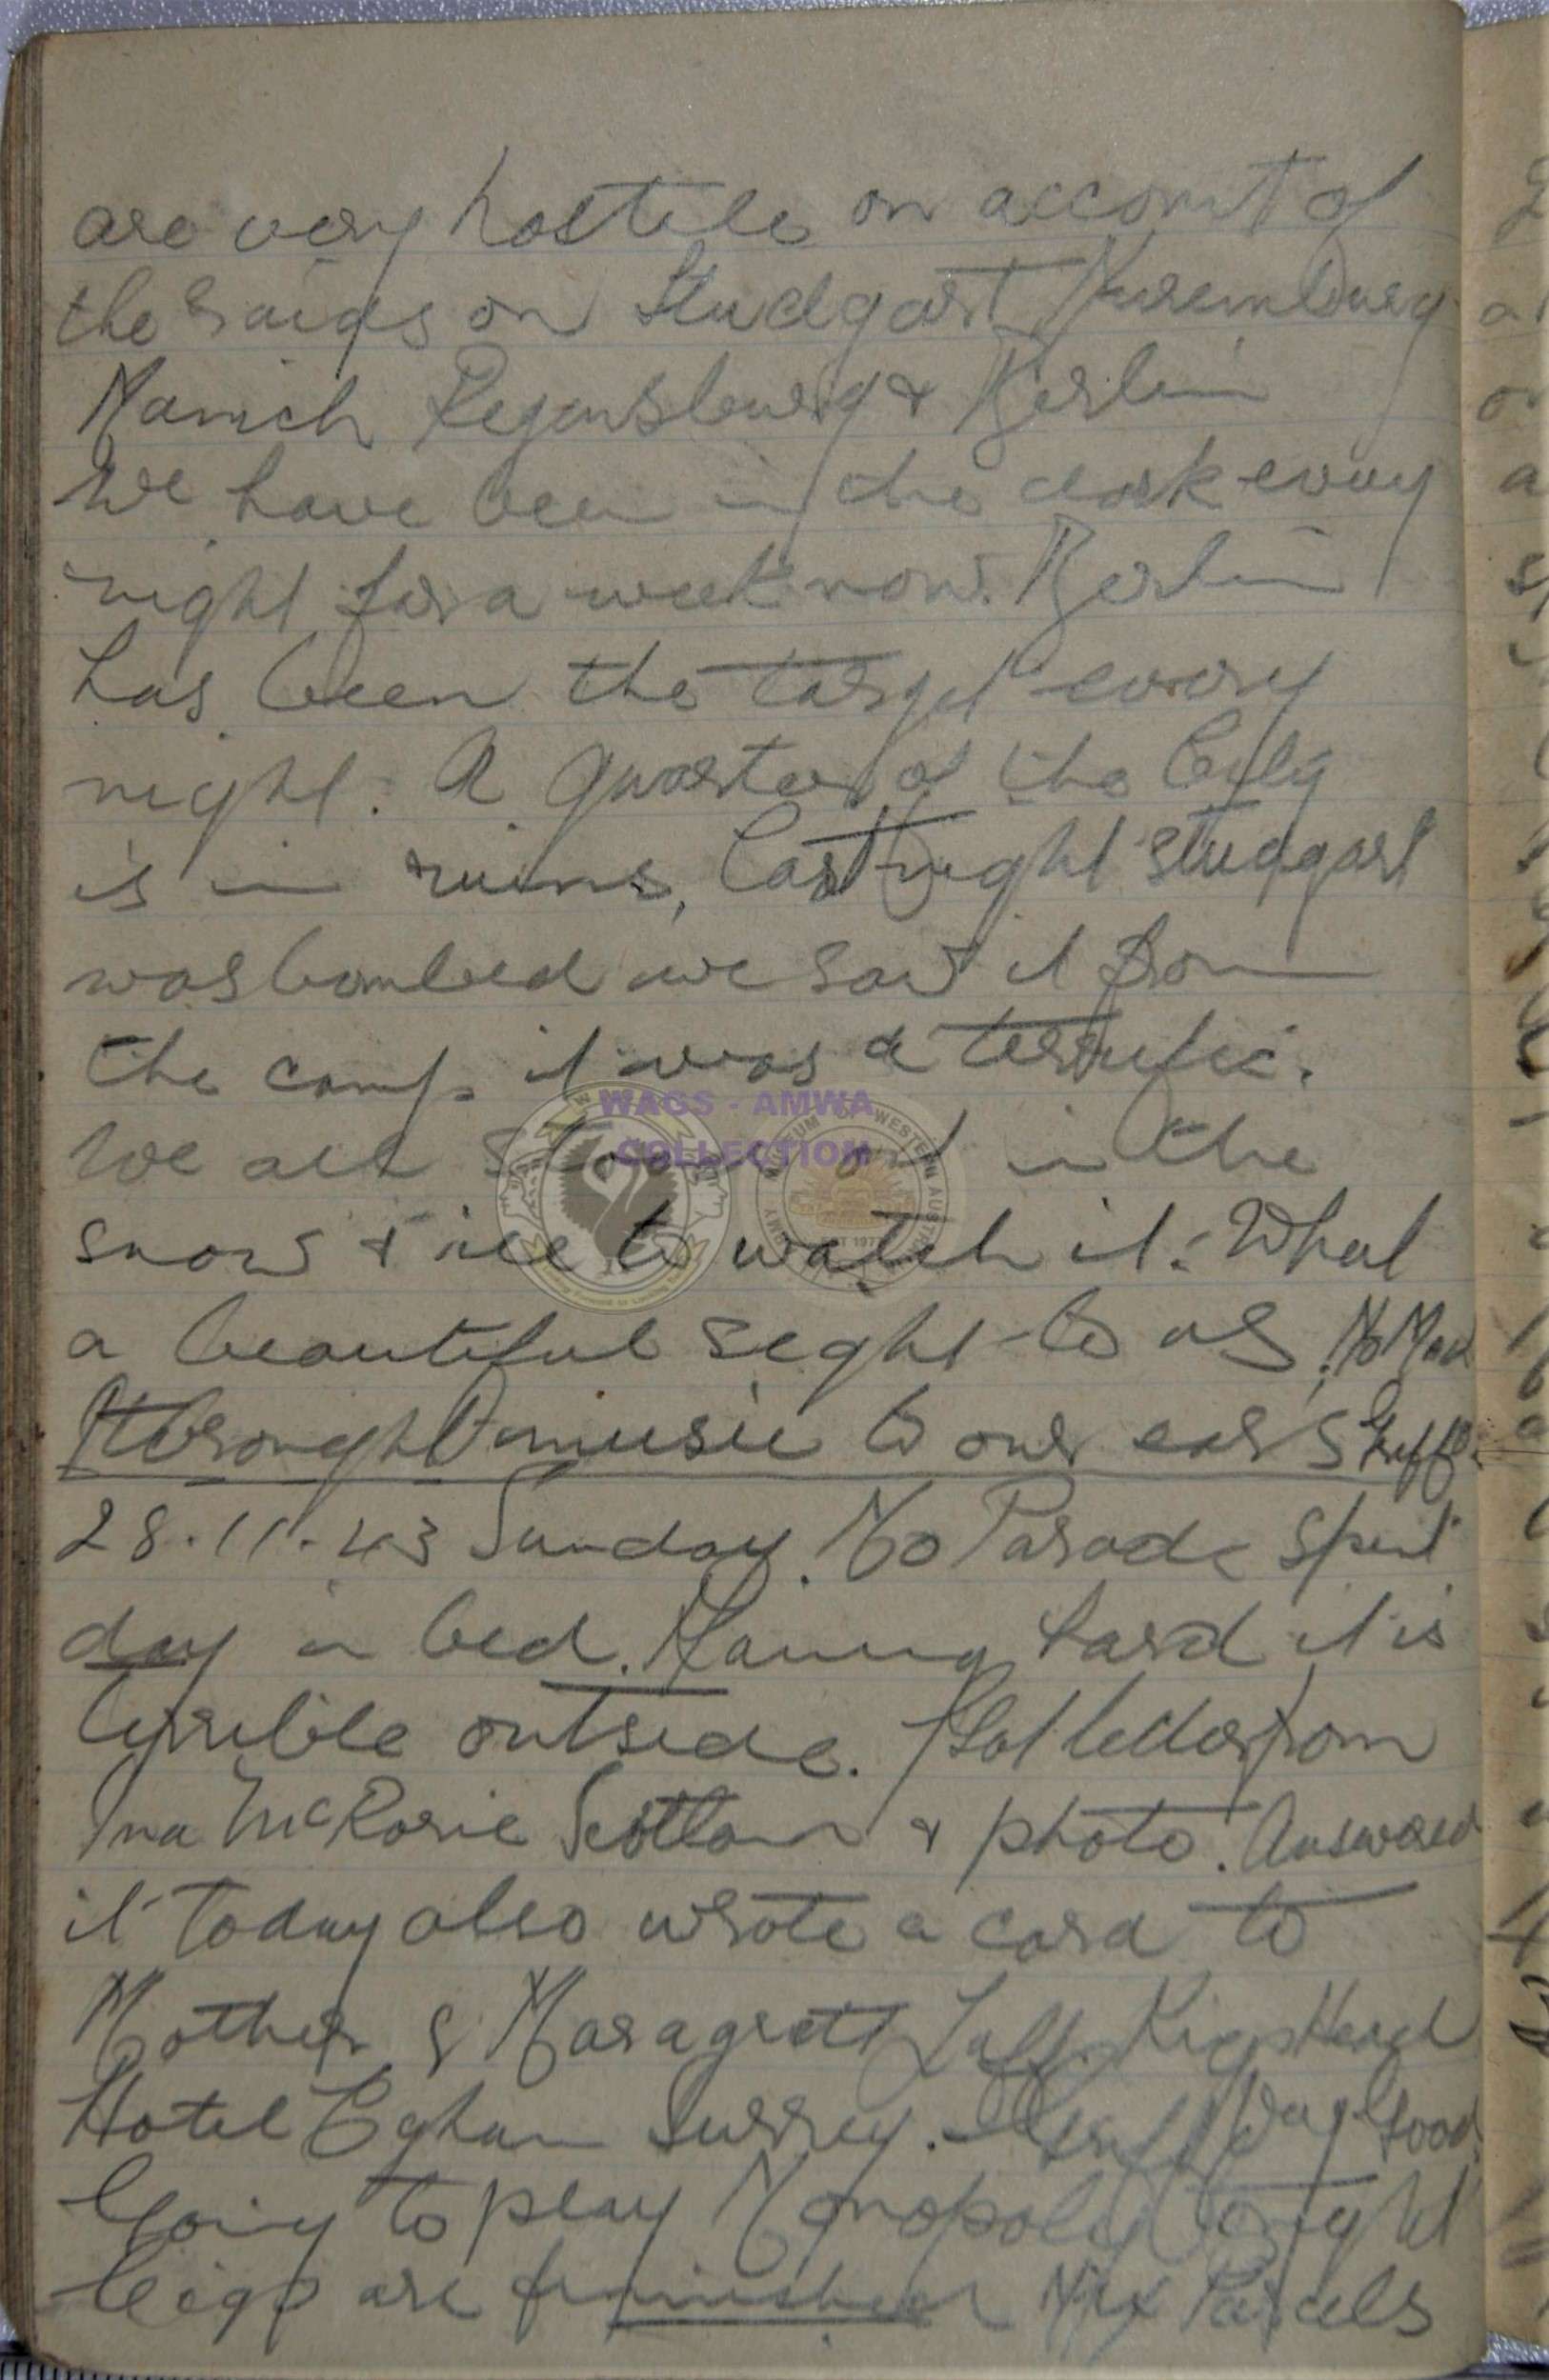 are very hostile on account of
the raids on Studgart Nuremburg
Munich Regensburg & Berlin
We have been in the dark every
night for a week now. Berlin
has been the target every
night. A quarter of the City
is in ruins, Last night Stuggart
was bombed we saw it from
the camp it was a terrific.
We all stood out in the
snow & ice to watch it. What
a beautiful sight to us. No Mail
It brought music to our ears Griff.
28.11.43 Sunday. No Parade Spent
day in bed. Raining hard it is
terrible outside. Got letter from
Ina McRorie Scotland & photo. Answered
it today also wrote a card to
Mother & Maragrett Kings Head
Hotel Egham Surrey. Day Good.
Going to play Monopoly tonight
Cigs are finnished Nix Parcels
WAGS - AMWA
COLLECTION